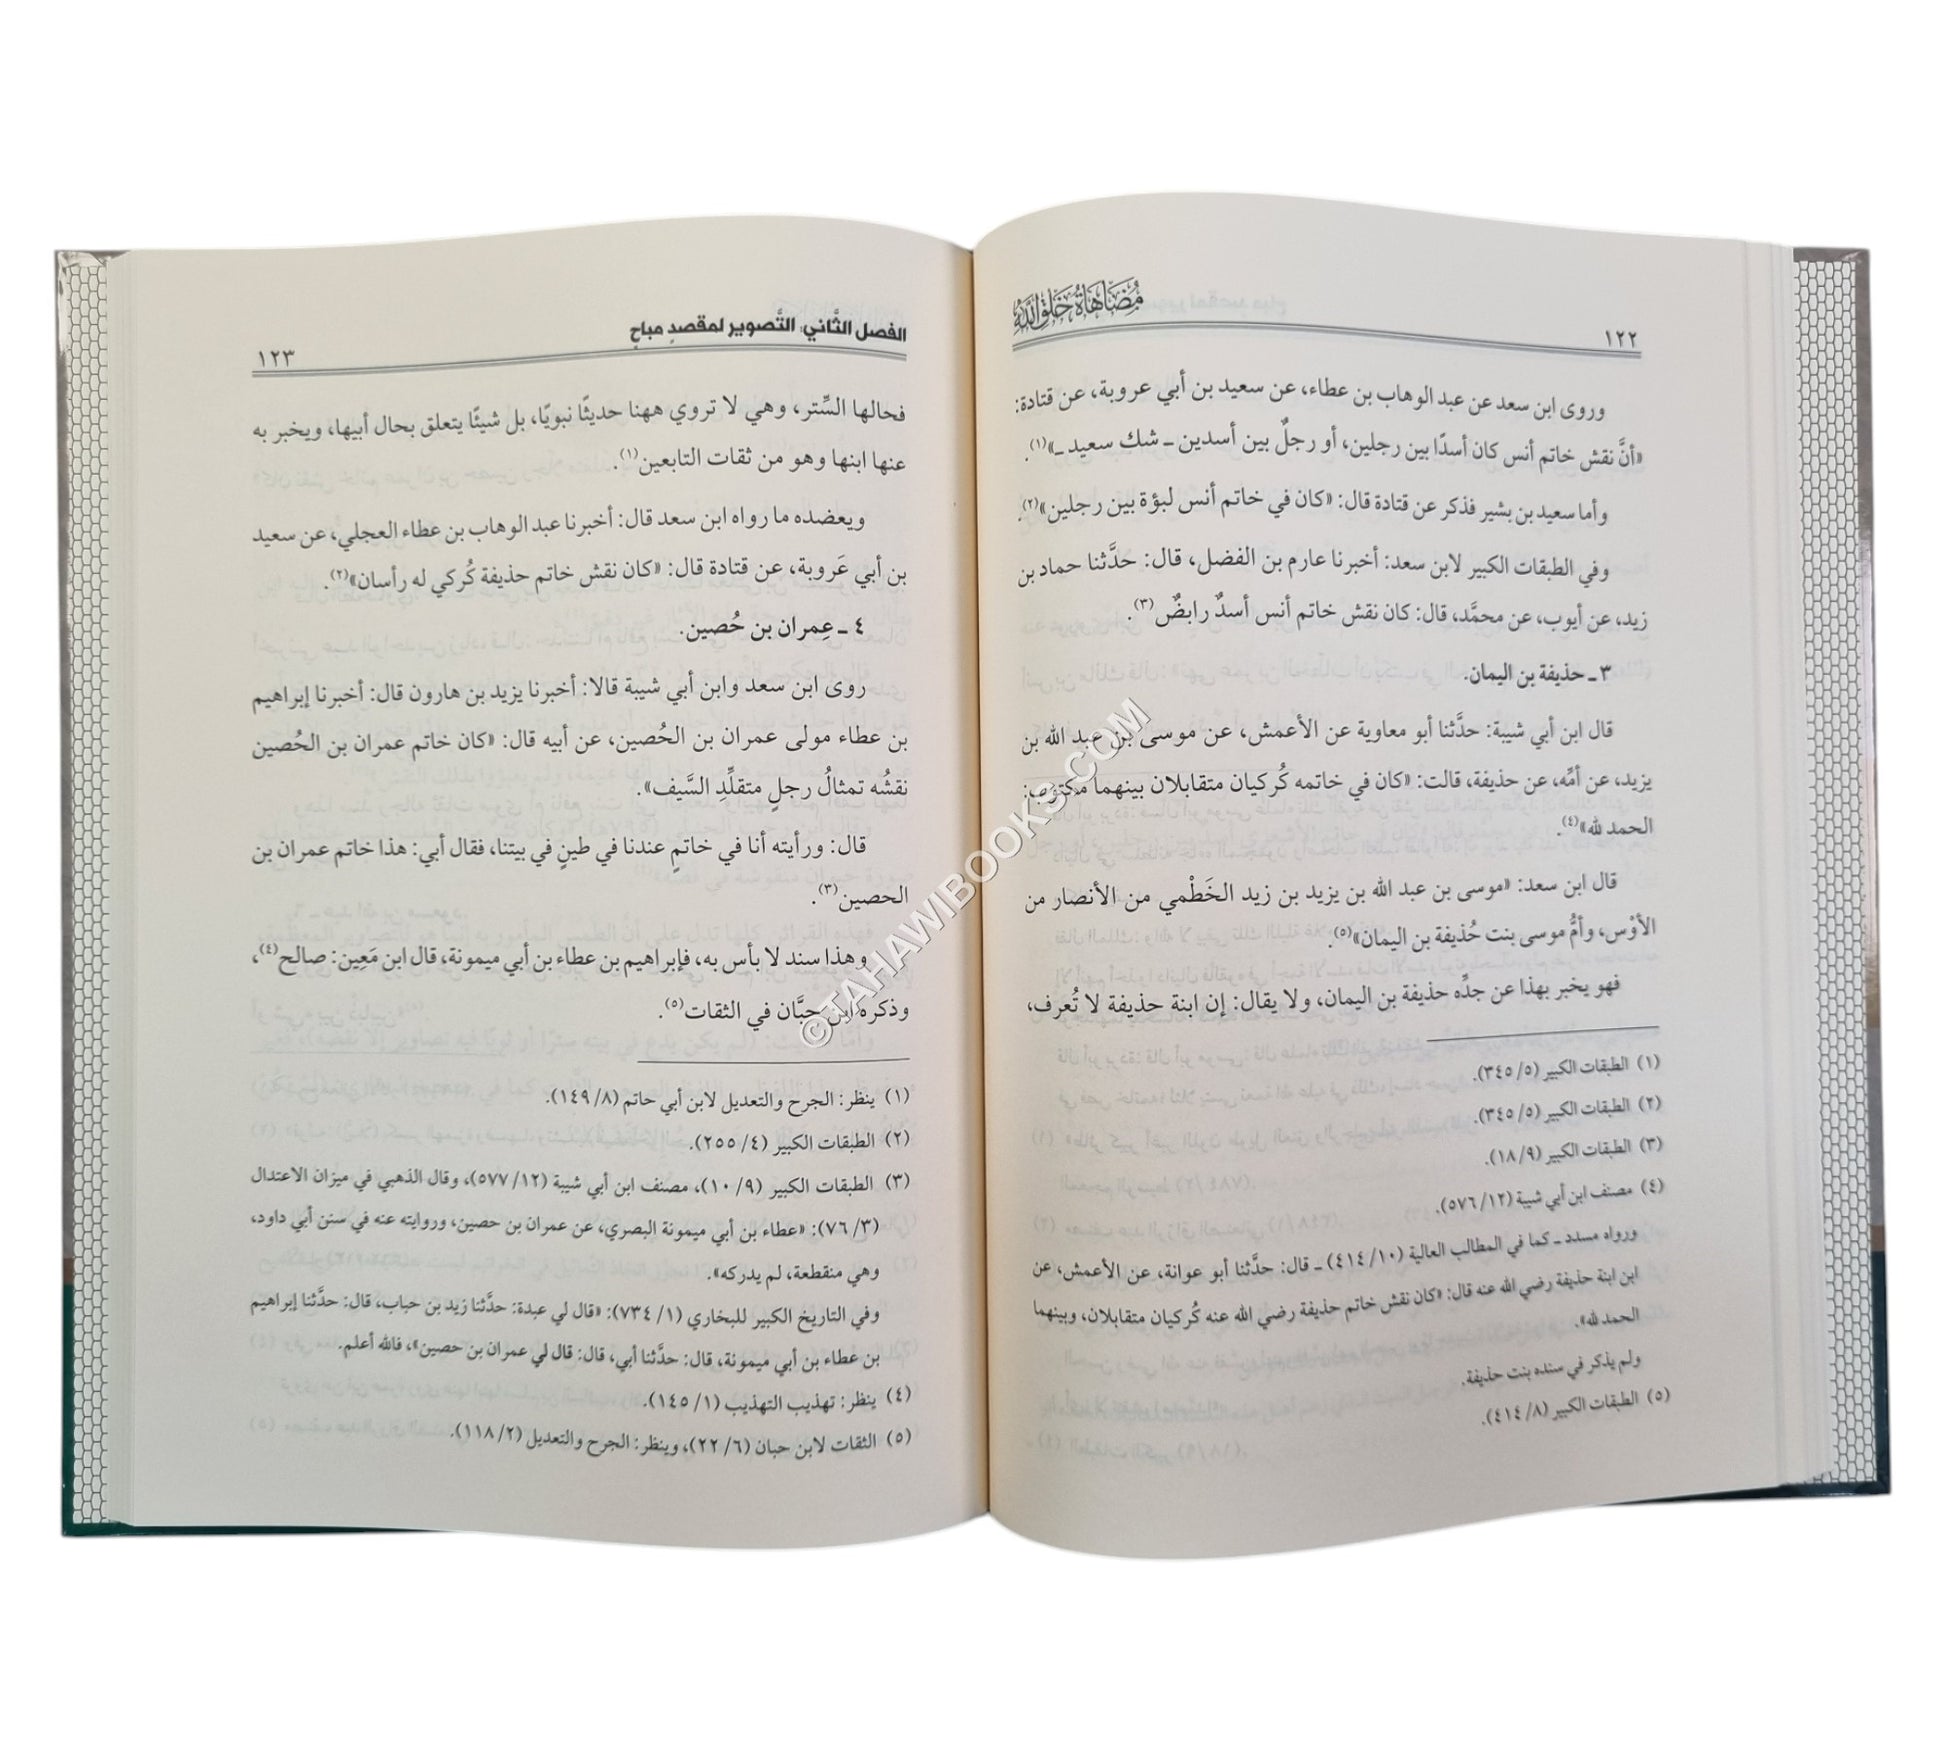 مُضَاهَاةُ خَلْقِ اللَّهِ
١٢٢
وروى ابن سعد عن عبد الوهاب بن عطاء، عن سعيد بن أبي عروبة، عن قتادة:
«أنَّ نقش خاتم أنس كان أسدًا بين رجلين، أو رجلٌ بين أسدين ـ شك سعيد ـ»(١).
وأما سعيد بن بشير فذكر عن قتادة قال: «كان في خاتم أنس لبؤة بين رجلين»(٢).
وفي الطبقات الكبير لابن سعد: أخبرنا عارم بن الفضل، قال: حدَّثنا حماد بن
زيد، عن أيوب، عن محمَّد، قال: كان نقش خاتم أنس أسدٌ رابضٌ(٣).
٣ ـ حذيفة بن اليمان.
قال ابن أبي شيبة: حدَّثنا أبو معاوية عن الأعمش، عن موسى بن عبد الله بن
يزيد، عن أمِّه، عن حذيفة، قالت: «كان في خاتمه كُركيان متقابلان بينهما مكتوب:
الحمد لله»(٤).
قال ابن سعد: «موسى بن عبد الله بن يزيد بن زيد الخَطْمي من الأنصار من
الأوْس، وأمُّ موسى بنت حُذيفة بن اليمان»(٥).
فهو يخبر بهذا عن جدِّه حذيفة بن اليمان، ولا يقال: إن ابنة حذيفة لا تُعرف،
(١) الطبقات الكبير (٥/ ٣٤٥).
(٢) الطبقات الكبير (٥/ ٣٤٥).
(٣) الطبقات الكبير (٩/ ١٨).
(٤) مصنف ابن أبي شيبة (١٢/ ٥٧٦).
ورواه مسدد ـ كما في المطالب العالية (١٠/ ٤١٤) ـ قال: حدَّثنا أبو عوانة، عن الأعمش، عن
ابن ابنة حذيفة رضي الله عنه قال: «كان نقش خاتم حذيفة رضي الله عنه كُركيان متقابلان، وبينهما
الحمد لله».
ولم يذكر في سنده بنت حذيفة.
(٥) الطبقات الكبير (٨/ ٤١٤).
الفصل الثَّاني: التَّصوير لمقصدٍ مباحٍ
١٢٣
فحالها السِّتر، وهي لا تروي ههنا حديثًا نبويًا، بل شيئًا يتعلق بحال أبيها، ويخبر به
عنها ابنها وهو من ثقات التابعين(١).
ويعضده ما رواه ابن سعد قال: أخبرنا عبد الوهاب بن عطاء العجلي، عن سعيد
بن أبي عَروبة، عن قتادة قال: «كان نقش خاتم حذيفة كُركي له رأسان»(٢).
٤ ـ عِمران بن حُصين.
روى ابن سعد وابن أبي شيبة قالا: أخبرنا يزيد بن هارون قال: أخبرنا إبراهيم
بن عطاء مولى عمران بن الحُصين، عن أبيه قال: «كان خاتم عمران بن الحُصين
نقشُه تمثالُ رجلٍ متقلِّدِ السَّيف».
قال: ورأيته أنا في خاتمٍ عندنا في طينٍ في بيتنا، فقال أبي: هذا خاتم عمران بن
الحصين(٣).
وهذا سند لا بأس به، فإبراهيم بن عطاء بن أبي ميمونة، قال ابن مَعِين: صالح(٤)،
وذكره ابن حبَّان في الثقات(٥).
(١) ينظر: الجرح والتعديل لابن أبي حاتم (٨/ ١٤٩).
(٢) الطبقات الكبير (٤/ ٢٥٥).
(٣) الطبقات الكبير (٩/ ١٠)، مصنف ابن أبي شيبة (١٢/ ٥٧٧)، وقال الذهبي في ميزان الاعتدال
(٣/ ٧٦): «عطاء بن أبي ميمونة البصري، عن عمران بن حصين، وروايته عنه في سنن أبي داود،
وهي منقطعة، لم يدركه».
وفي التاريخ الكبير للبخاري (١/ ٧٣٤): «قال لي عبدة: حدَّثنا زيد بن حباب، قال: حدَّثنا إبراهيم
بن عطاء بن أبي ميمونة، قال: حدَّثنا أبي، قال: قال لي عمران بن حصين»، فالله أعلم.
(٤) ينظر: تهذيب التهذيب (١/ ١٤٥).
(٥) الثقات لابن حبان (٦/ ٢٢)، وينظر: الجرح والتعديل (٢/ ١١٨).
©TAHAWIBOOKS.COM